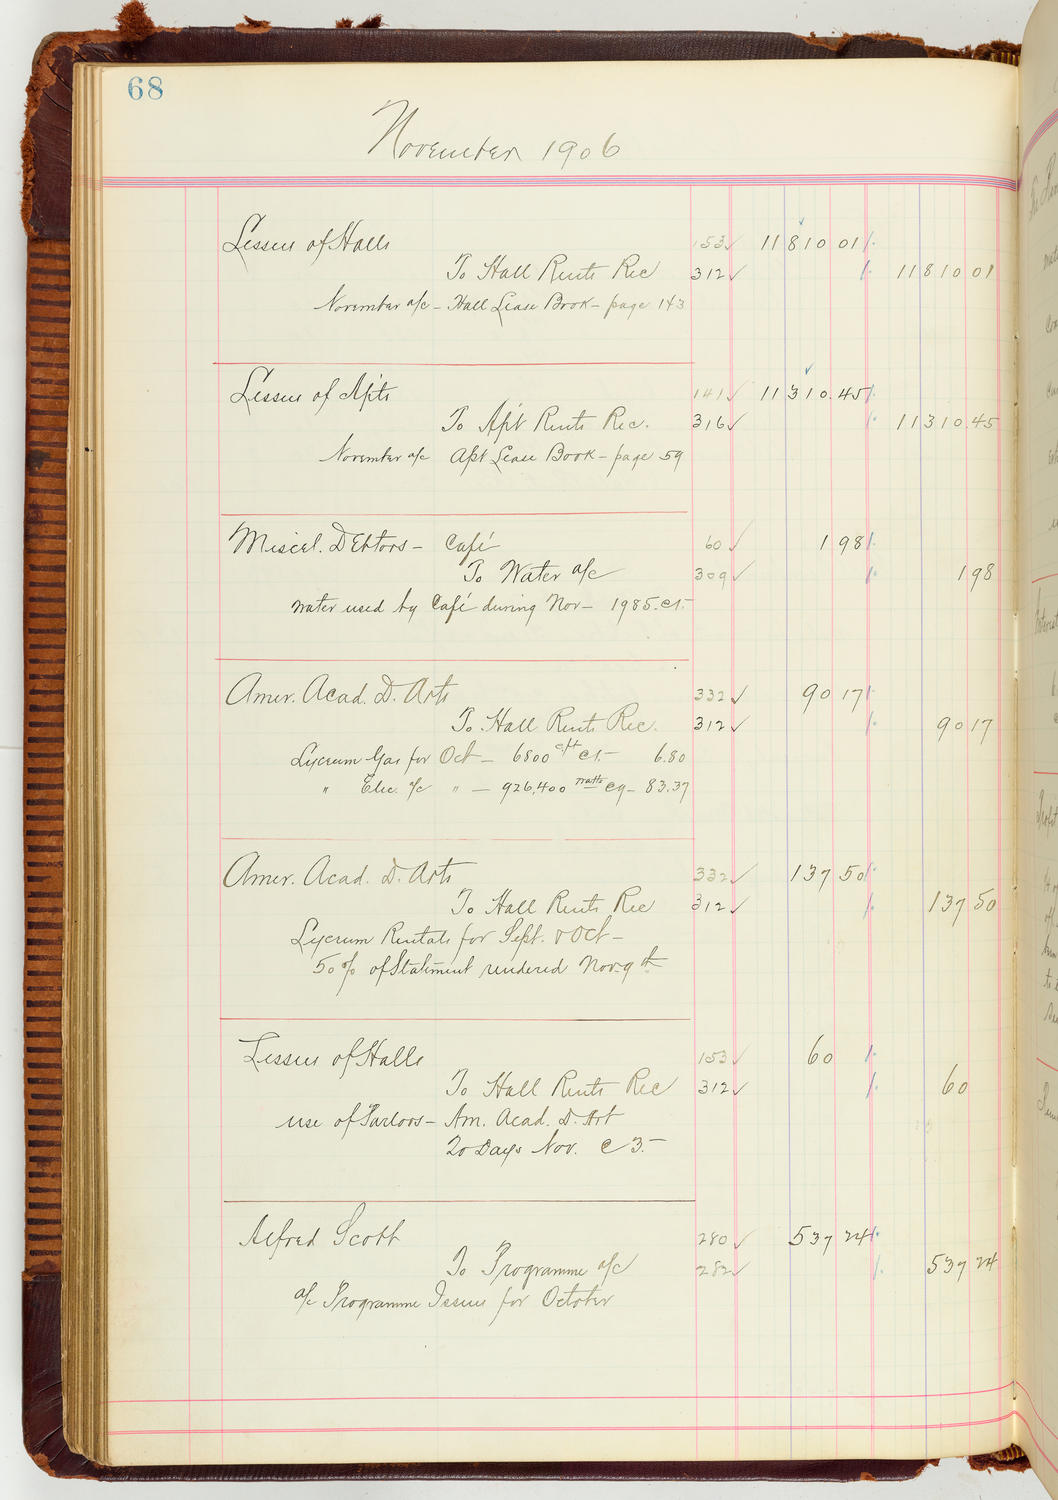 68
November 1906
Lessees of Halls 153 ✓ 11810 01
To Hall Rents Rec 312 ✓ 11810 01
November a/c - Hall Lease Book - page 143
Lessees of Apts 141 ✓ 11310.45
To Apt Rents Rec. 316 ✓ 11310.45
November a/c Apt Lease Book - page 59
Miscel. Debtors - Café 60 ✓ 1 98
To Water a/c 309 ✓ 1 98
water used by Café during Nov - 1985. cf.
Amer. Acad. D. Arts 332 ✓ 90 17
To Hall Rents Rec. 312 ✓ 90 17
Lyceum Gas for Oct - 6800 c/ft 6.80
" Elec. a/c " - 926,400 watts 83.37
Amer. Acad. D. Arts 332 ✓ 137 50
To Hall Rents Rec 312 ✓ 137 50
Lyceum Rentals for Sept. & Oct -
50% of Statement rendered Nov. 9th
Lessees of Halls 153 ✓ 60
To Hall Rents Rec 312 ✓ 60
use of Parlors - Am. Acad. D. Art
20 Days Nov. @ 3.-
Alfred Scott 280 ✓ 537 24
To Programme a/c 282 ✓ 537 24
a/c Programme Issues for October